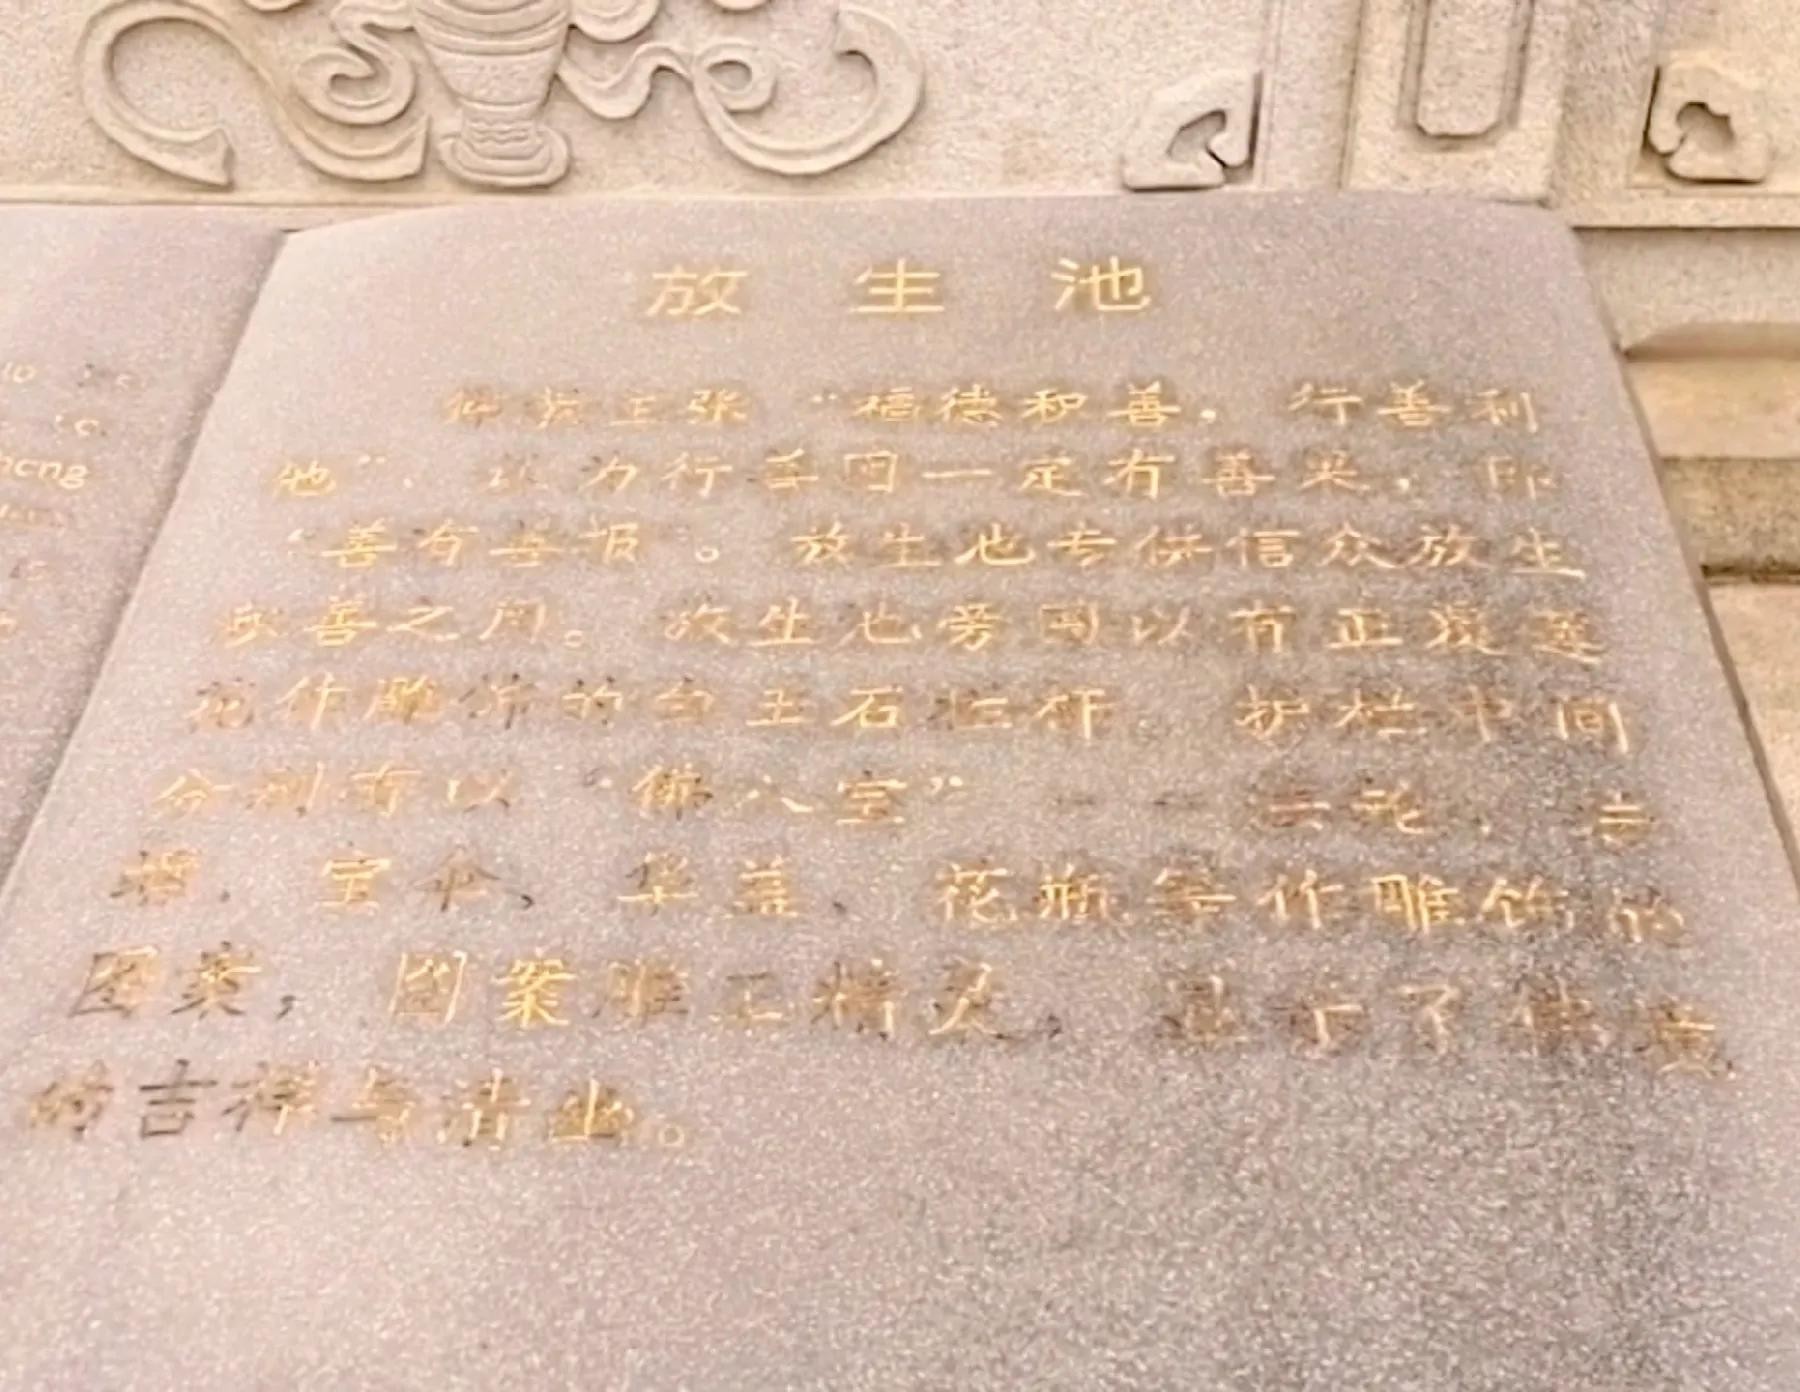 放生池
佛教主张“福德和善，行善利
他”，认为行善因一定有善果，即
“善有善报”。放生池专供信众放生
积善之用。放生池旁围以有正覆莲
花作雕饰的白玉石栏杆，护栏中间
分别有以“佛八宝”——法轮、吉
、宝伞、华盖、花瓶等作雕饰的
图案，图案雕工精，显示了佛教
的吉祥与清幽。
heng